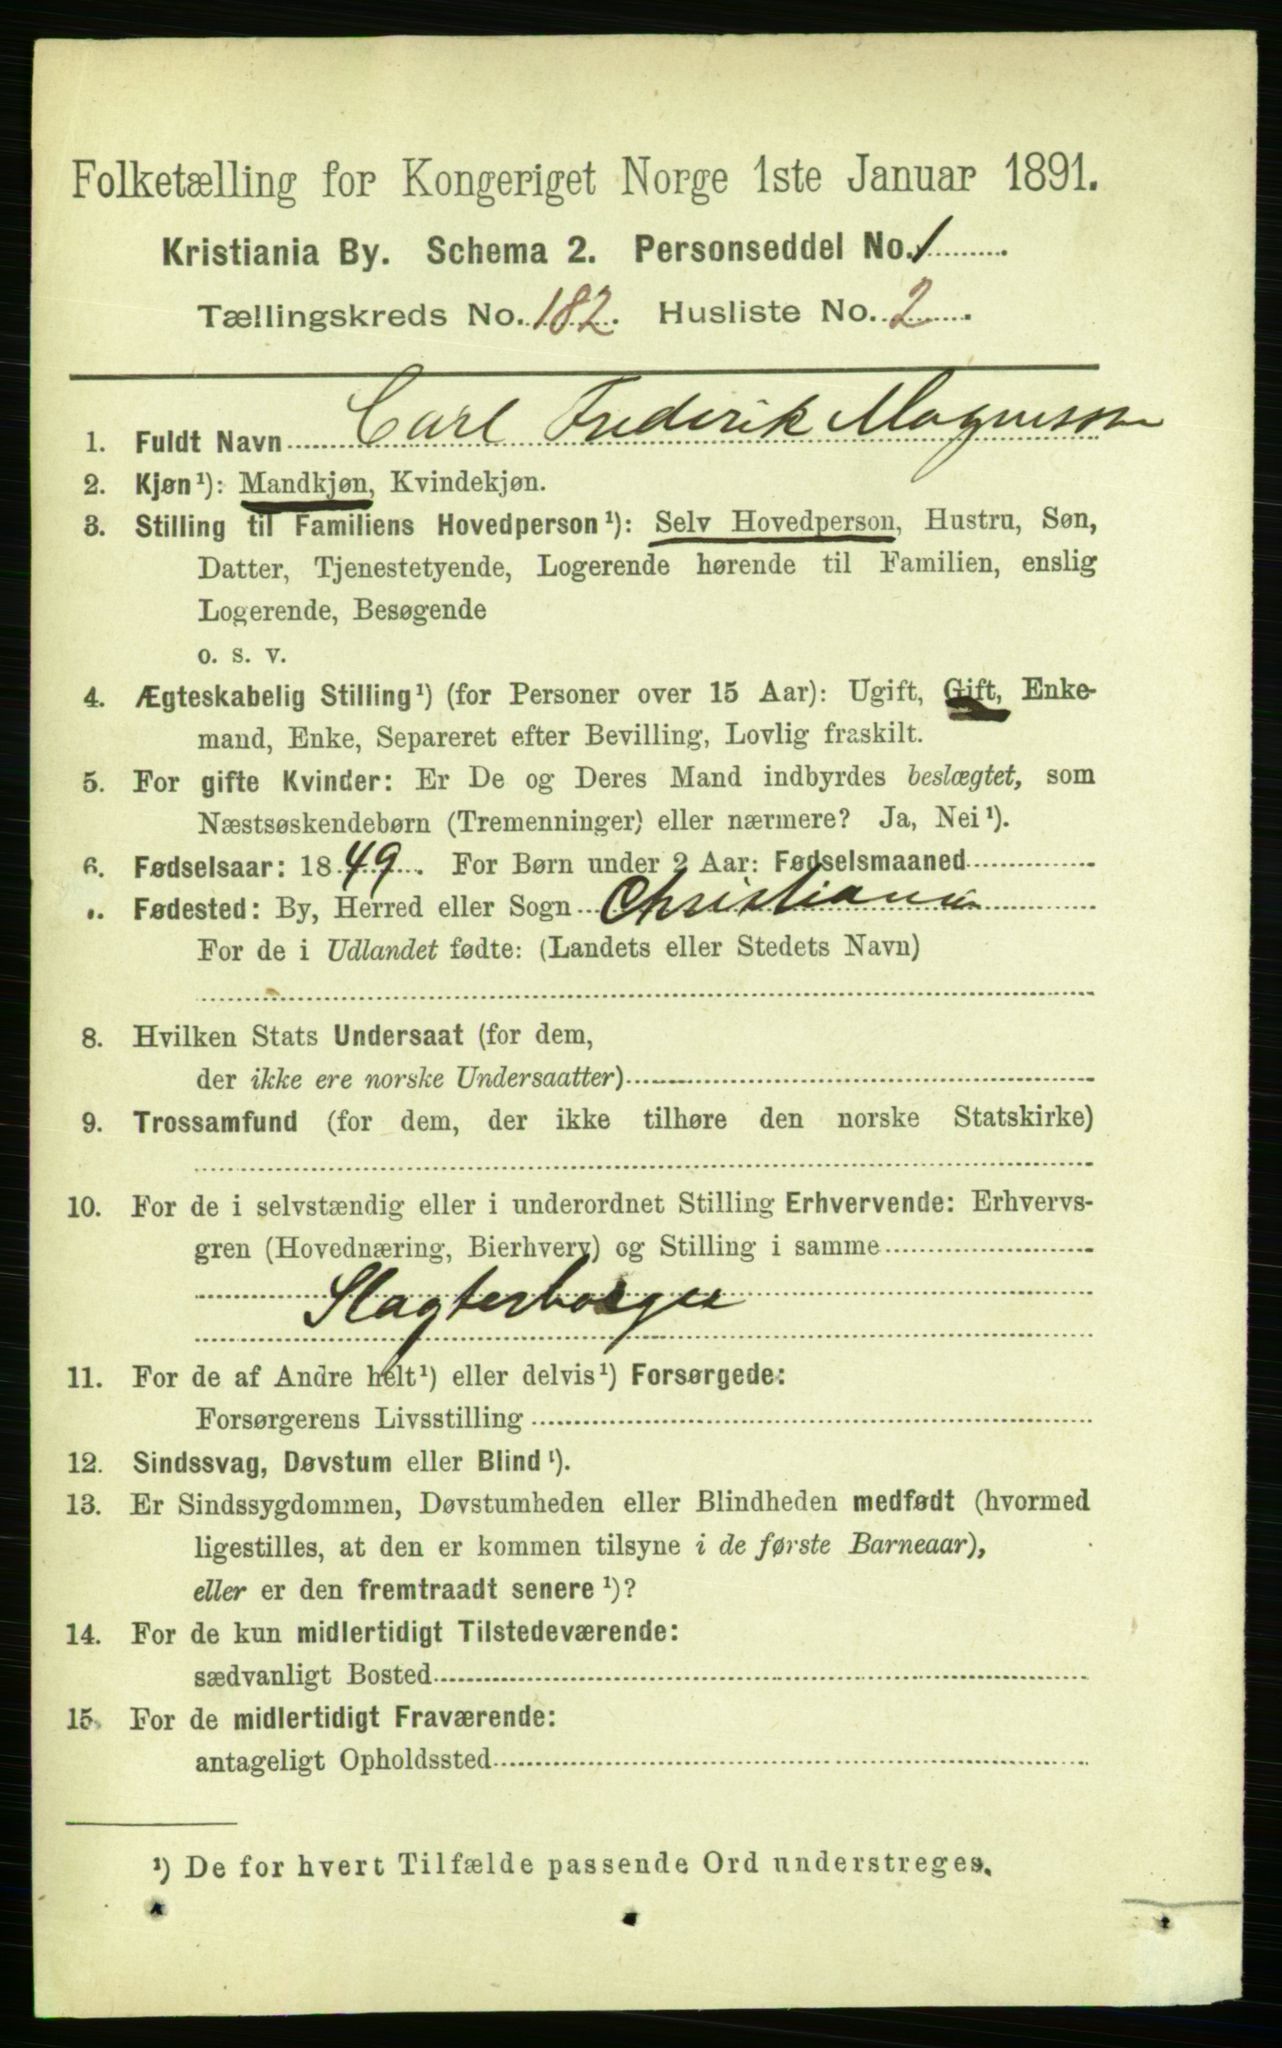 Folketælling for Kongeriget Norge 1ste Januar 1891.
Kristiania By. Schema 2. Personseddel No. 1
Tællingskreds No. 182. Husliste No. 2
1. Fuldt Navn Carl Frederik Magnusson
2. Kjøn¹): Mandkjøn, Kvindekjøn.
3. Stilling til Familiens Hovedperson¹): Selv Hovedperson, Hustru, Søn,
Datter, Tjenestetyende, Logerende hørende til Familien, enslig
Logerende, Besøgende
o. s. v.
4. Ægteskabelig Stilling¹) (for Personer over 15 Aar): Ugift, Gift, Enke-
mand, Enke, Separeret efter Bevilling, Lovlig fraskilt.
5. For gifte Kvinder: Er De og Deres Mand indbyrdes beslægtet, som
Næstsøskendebørn (Tremenninger) eller nærmere? Ja, Nei¹).
6. Fødselsaar: 1849. For Børn under 2 Aar: Fødselsmaaned
Fødested: By, Herred eller Sogn Christiania
For de i Udlandet fødte: (Landets eller Stedets Navn)
8. Hvilken Stats Undersaat (for dem,
der ikke ere norske Undersaatter)
9. Trossamfund (for dem, der ikke tilhøre den norske Statskirke)
10. For de i selvstændig eller i underordnet Stilling Erhvervende: Erhvervs-
gren (Hovednæring, Bierhverv) og Stilling i samme
Slagterborger
11. For de af Andre helt¹) eller delvis¹) Forsørgede:
Forsørgerens Livsstilling
12. Sindssvag, Døvstum eller Blind¹).
13. Er Sindssygdommen, Døvstumheden eller Blindheden medfødt (hvormed
ligestilles, at den er kommen tilsyne i de første Barneaar),
eller er den fremtraadt senere¹)?
14. For de kun midlertidigt Tilstedeværende:
sædvanligt Bosted
15. For de midlertidigt Fraværende:
antageligt Opholdssted
¹) De for hvert Tilfælde passende Ord understreges.